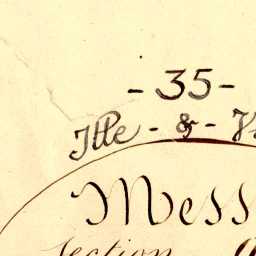 - 35 -
Title - & - V
Mess
Section